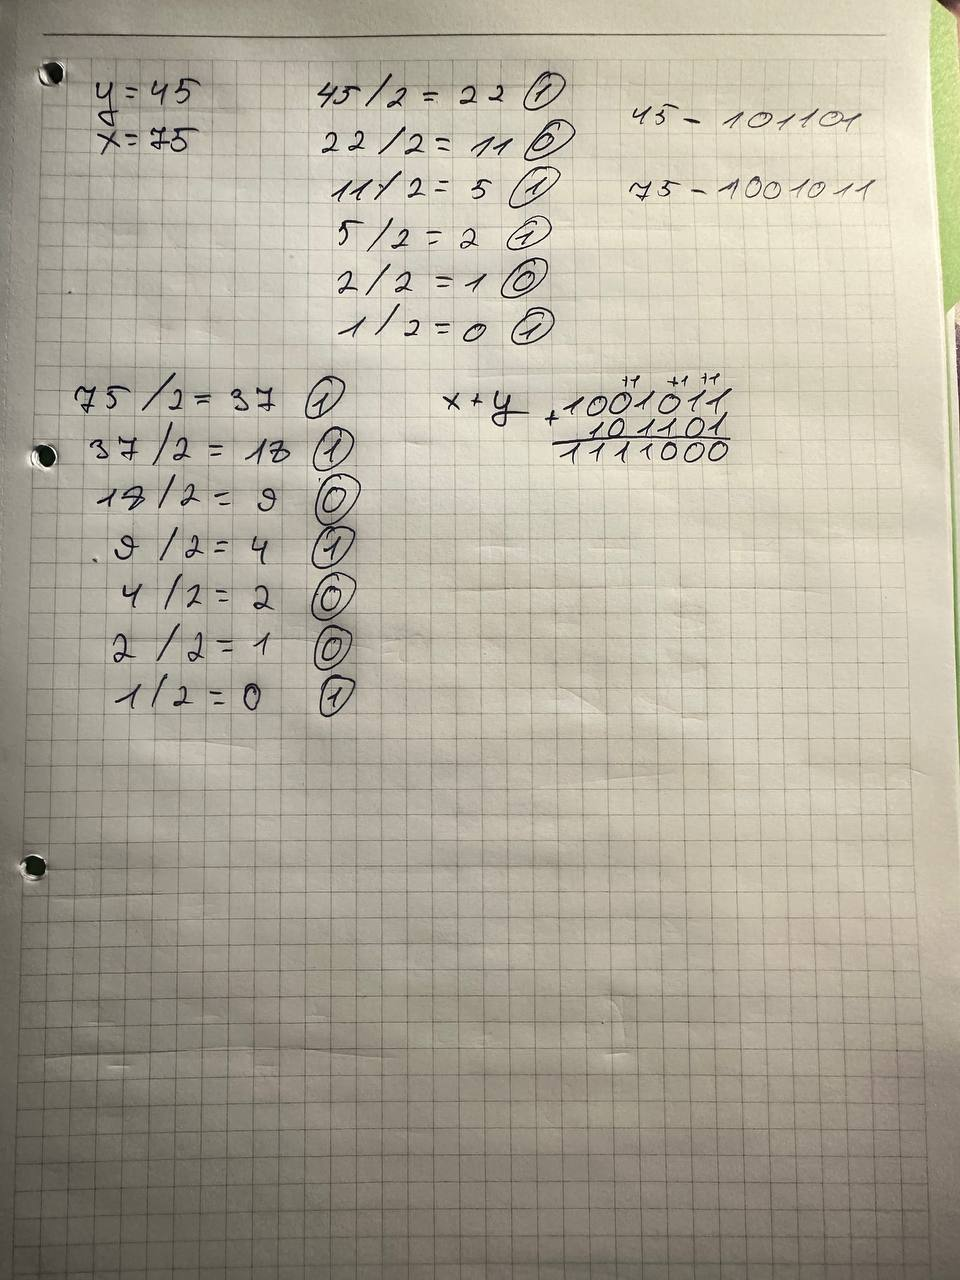 y = 45
x = 75
45 / 2 = 22 1
22 / 2 = 11 0
11 / 2 = 5 1
5 / 2 = 2 1
2 / 2 = 1 0
1 / 2 = 0 1
45 - 101101
75 - 1001011
75 / 2 = 37 1
37 / 2 = 18 1
18 / 2 = 9 0
9 / 2 = 4 1
4 / 2 = 2 0
2 / 2 = 1 0
1 / 2 = 0 1
+1 +1 +1
x + y + 1001011
101101
1111000